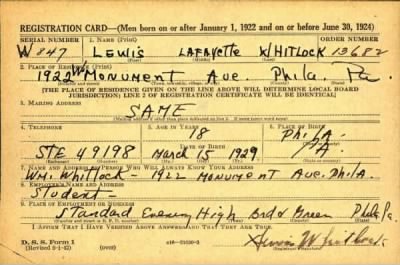 REGISTRATION CARD—(Men born on or after January 1, 1922 and on or before June 30, 1924)
SERIAL NUMBER 1. NAME (Print) ORDER NUMBER
W 847 LEWIS LAFAYETTE WHITLOCK 13682
2. PLACE OF RESIDENCE (Print)
1922 W MONUMENT Ave. Phila. Pa.
[THE PLACE OF RESIDENCE GIVEN ON THE LINE ABOVE WILL DETERMINE LOCAL BOARD
JURISDICTION; LINE 2 OF REGISTRATION CERTIFICATE WILL BE IDENTICAL]
3. MAILING ADDRESS
SAME
4. TELEPHONE 5. AGE IN YEARS 6. PLACE OF BIRTH
18 PHILA-
DATE OF BIRTH
STE 49198 March 15 1924 PA
7. NAME AND ADDRESS OF PERSON WHO WILL ALWAYS KNOW YOUR ADDRESS
WM. Whitlock - 1922 MONUMENT AVE. Phila.
8. EMPLOYER'S NAME AND ADDRESS
Student -
9. PLACE OF EMPLOYMENT OR BUSINESS
Standard Evening High Brd & Green Phila Pa
I AFFIRM THAT I HAVE VERIFIED ABOVE ANSWERS AND THAT THEY ARE TRUE.
D. S. S. Form 1
(over)